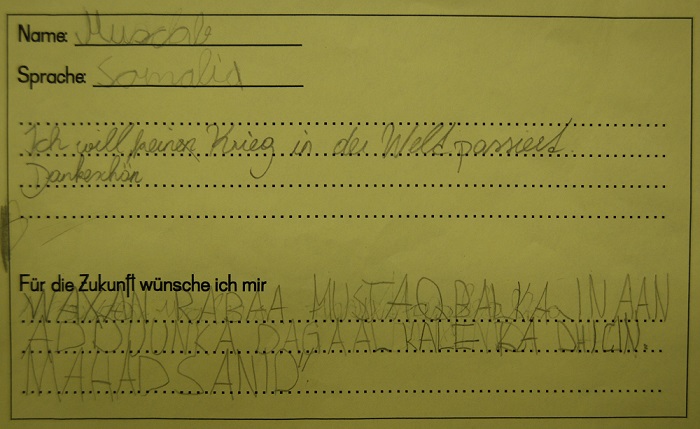 Name: Muscab
Sprache: Somalia
Ich will keinen Krieg in der Welt passiert.
Dankeschön
Für die Zukunft wünsche ich mir
WAXAN RABAA MUSTAQBALKA INAAN
ADDUUNKA DAGAAL KALE KA DHICIN.
MAHADSANID